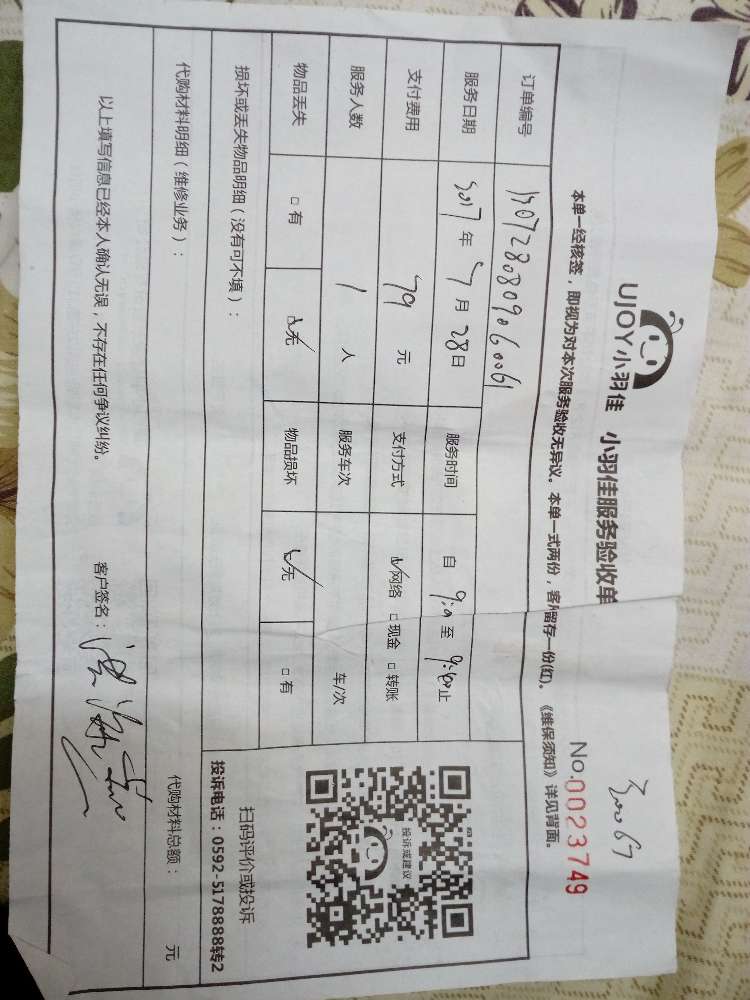 30067
UJOY小羽佳 小羽佳服务验收单
No.0023749
本单一经核签，即视为对本次服务验收无异议。本单一式两份，客户留存一份(红)。《维保须知》详见背面。
订单编号
服务日期 2017年7月28日 服务时间 自 9:00 至 9:40 止
支付费用 79 元 支付方式 ☑网络 □现金 □转账
服务人数 1 人 服务车次 车/次
物品丢失 □有 ☑无 物品损坏 ☑无 □有
损坏或丢失物品明细（没有可不填）：
投诉或建议
扫码评价或投诉
投诉电话：0592-5178888转2
代购材料明细（维修业务）： 代购材料总额： 元
以上填写信息已经本人确认无误，不存在任何争议纠纷。 客户签名：